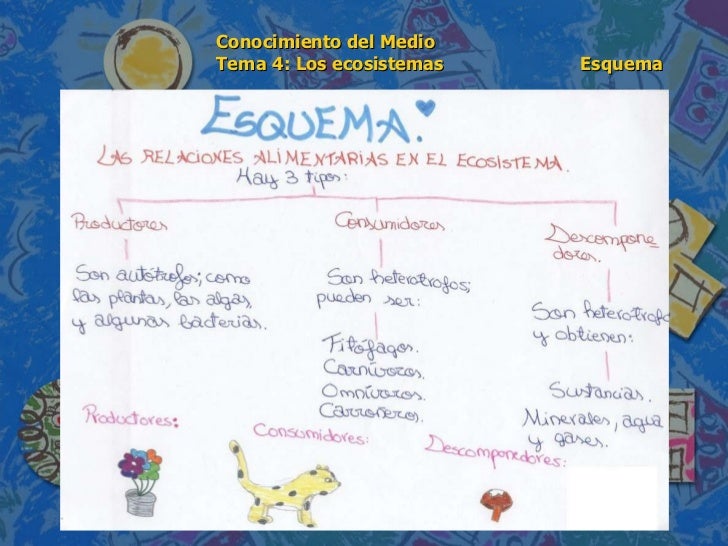 Conocimiento del Medio
Tema 4: Los ecosistemas Esquema
ESQUEMA.
LAS RELACIONES ALIMENTARIAS EN EL ECOSISTEMA.
Hay 3 tipos:
Productores
Son autótrofos; como
las plantas, las algas,
y algunas bacterias.
Consumidores
Son heterotrofos;
pueden ser:
Fitófagos.
Carnívoros.
Omnívoros.
Carroñeros.
Descompone
dores.
Son heterotrofo
y obtienen:
Sustancias.
Minerales, agua
y gases.
Productores:
Consumidores:
Descomponedores: